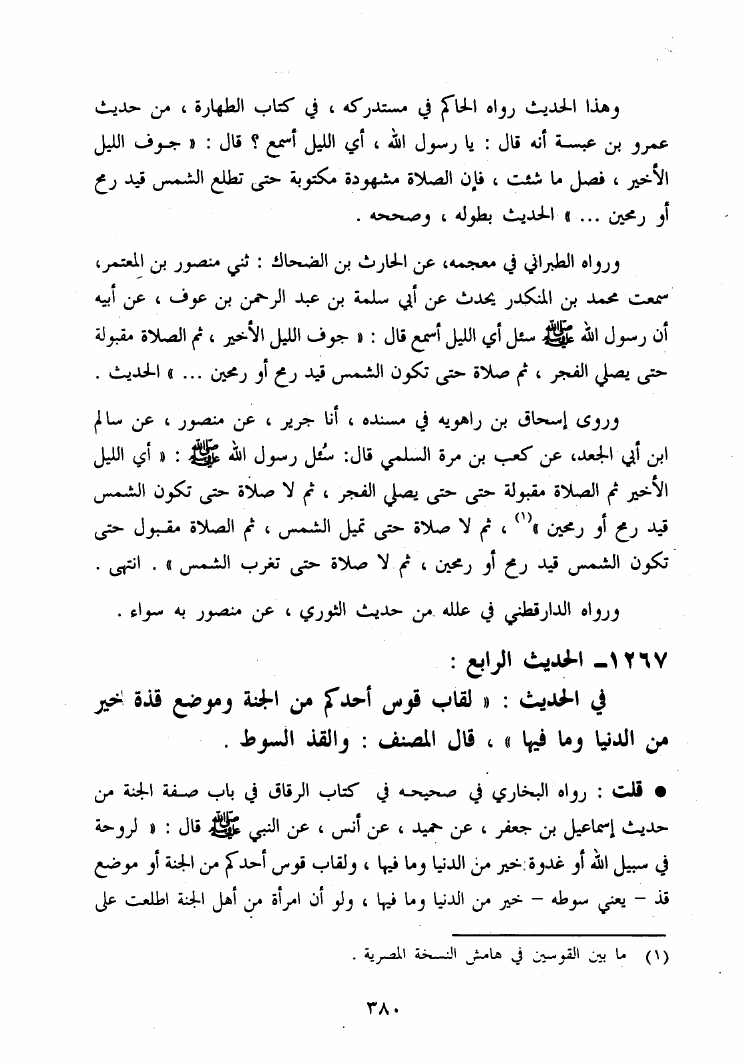 وهذا الحديث رواه الحاكم في مستدركه ، في كتاب الطهارة ، من حديث
عمرو بن عبسة أنه قال : يا رسول الله ، أي الليل أسمع ؟ قال : « جوف الليل
الأخير ، فصل ما شئت ، فإن الصلاة مشهودة مكتوبة حتى تطلع الشمس قيد رمح
أو رمحين ... » الحديث بطوله ، وصححه .
ورواه الطبراني في معجمه، عن الحارث بن الضحاك : ثني منصور بن المعتمر،
سمعت محمد بن المنكدر يحدث عن أبي سلمة بن عبد الرحمن بن عوف ، عن أبيه
أن رسول الله ﷺ سئل أي الليل أسمع قال : « جوف الليل الأخير ، ثم الصلاة مقبولة
حتى يصلي الفجر ، ثم صلاة حتى تكون الشمس قيد رمح أو رمحين ... » الحديث .
وروى إسحاق بن راهويه في مسنده ، أنا جرير ، عن منصور ، عن سالم
ابن أبي الجعد، عن كعب بن مرة السلمي قال: سُئل رسول الله ﷺ : « أي الليل
الأخير ثم الصلاة مقبولة حتى حتى يصلي الفجر ، ثم لا صلاة حتى تكون الشمس
قيد رمح أو رمحين »(١) ، ثم لا صلاة حتى تميل الشمس ، ثم الصلاة مقبول حتى
تكون الشمس قيد رمح أو رمحين ، ثم لا صلاة حتى تغرب الشمس » . انتهى .
ورواه الدارقطني في علله من حديث الثوري ، عن منصور به سواء .
١٢٦٧ـ الحديث الرابع :
في الحديث : « لقاب قوس أحدكم من الجنة وموضع قذة خير
من الدنيا وما فيها » ، قال المصنف : والقذ السوط .
● قلت : رواه البخاري في صحيحه في كتاب الرقاق في باب صفة الجنة من
حديث إسماعيل بن جعفر ، عن حميد ، عن أنس ، عن النبي ﷺ قال : « لروحة
في سبيل الله أو غدوة خير من الدنيا وما فيها ، ولقاب قوس أحدكم من الجنة أو موضع
قذ – يعني سوطه – خير من الدنيا وما فيها ، ولو أن امرأة من أهل الجنة اطلعت على
(١) ما بين القوسين في هامش النسخة المصرية .
٣٨٠